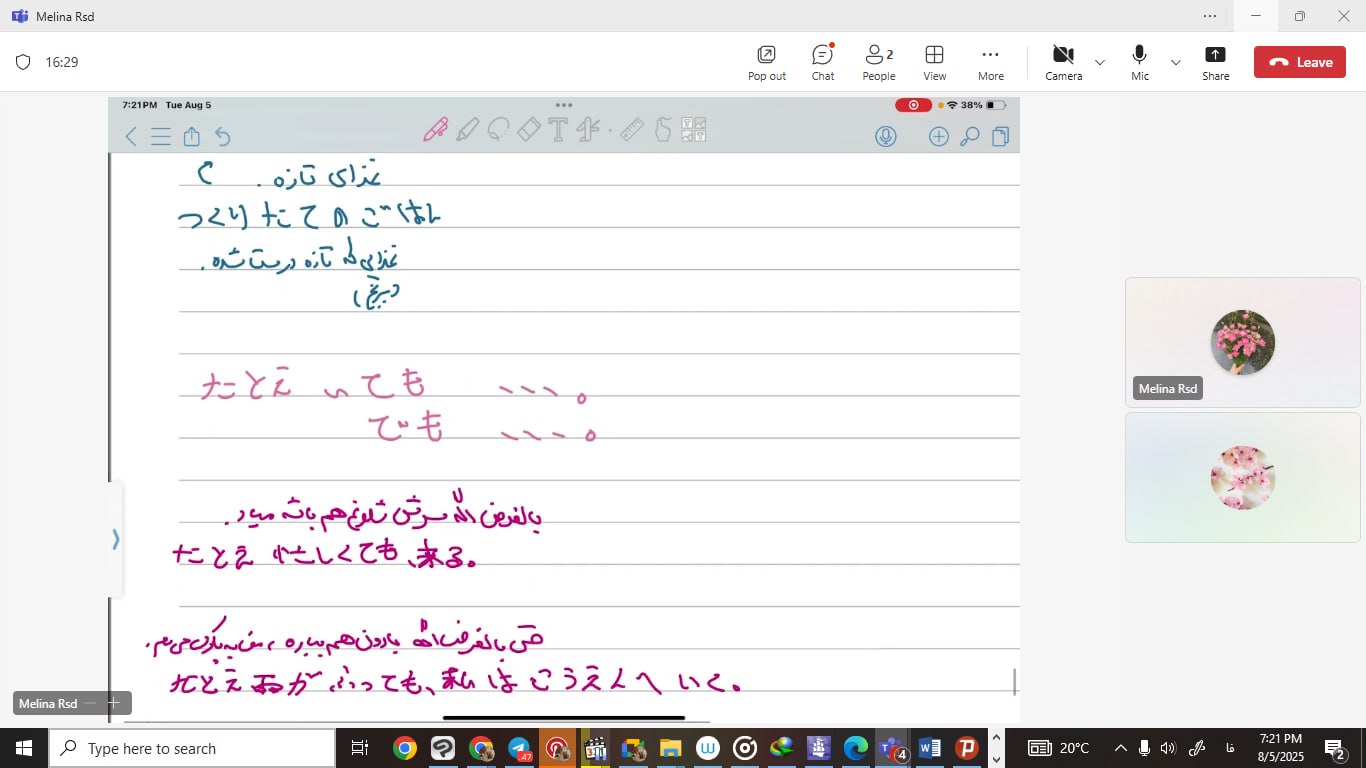 Melina Rsd
16:29
Pop out
Chat
2
People
View
More
Camera
Mic
Share
Leave
7:21PM Tue Aug 5
38%
غذای تازه .
つくりたてのごはん
غذای تازه درست شده.
(برنج)
たとえ いても ....。
でも ....。
بالفرض اگه سرش شلوغ هم باشه میاد.
たとえ忙しくても、来る。
حتی بالفرض اگه بارون هم بباره ، من به پارک می‌رم.
たとえ雨がふっても、私はこうえんへいく。
Melina Rsd
Melina Rsd
Type here to search
47
4
20°C
فا
7:21 PM
8/5/2025
2